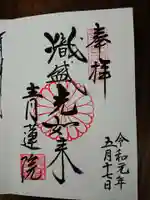 奉拝
熾盛光如来
青蓮院
令和元年
五月十七日